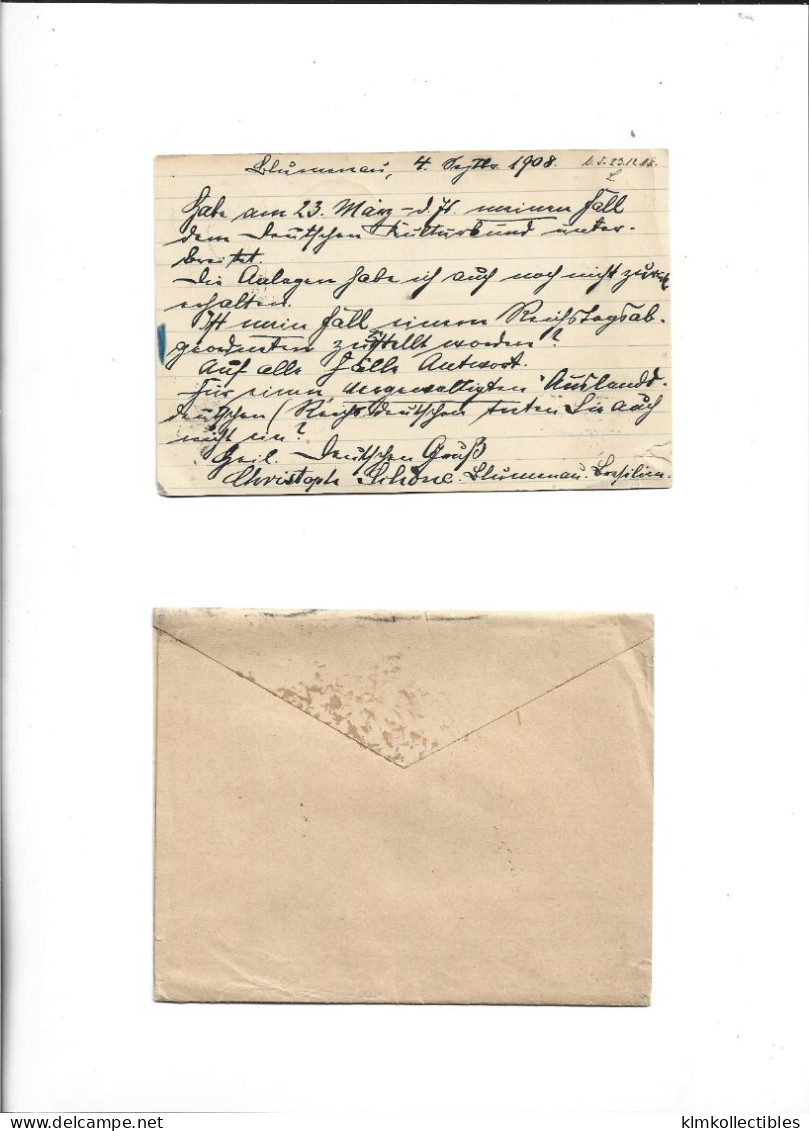 Blumenau, 4. Septbr. 1908.
Habe am 23. März d. Js. meinen Fall
dem Deutschen Kulturbund unter-
breitet.
Die Anlagen habe ich auch noch nicht zurück
erhalten.
Ist mein Fall einem Reichstagsab-
geordneten zugestellt worden?
Auf alle Fälle Antwort.
Für einen vergewaltigten Auslands-
deutschen (Reichsdeutschen treten Sie auch
nicht ein?
Heil. Deutschen Gruß
Christoph Schöne. Blumenau. Brasilien.
klmkollectibles